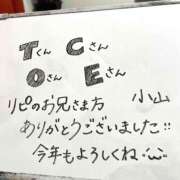 Tくん Cさん
Oさん Eさん
リピのお兄さま方 小山
ありがとうございました!!
今年もよろしくね